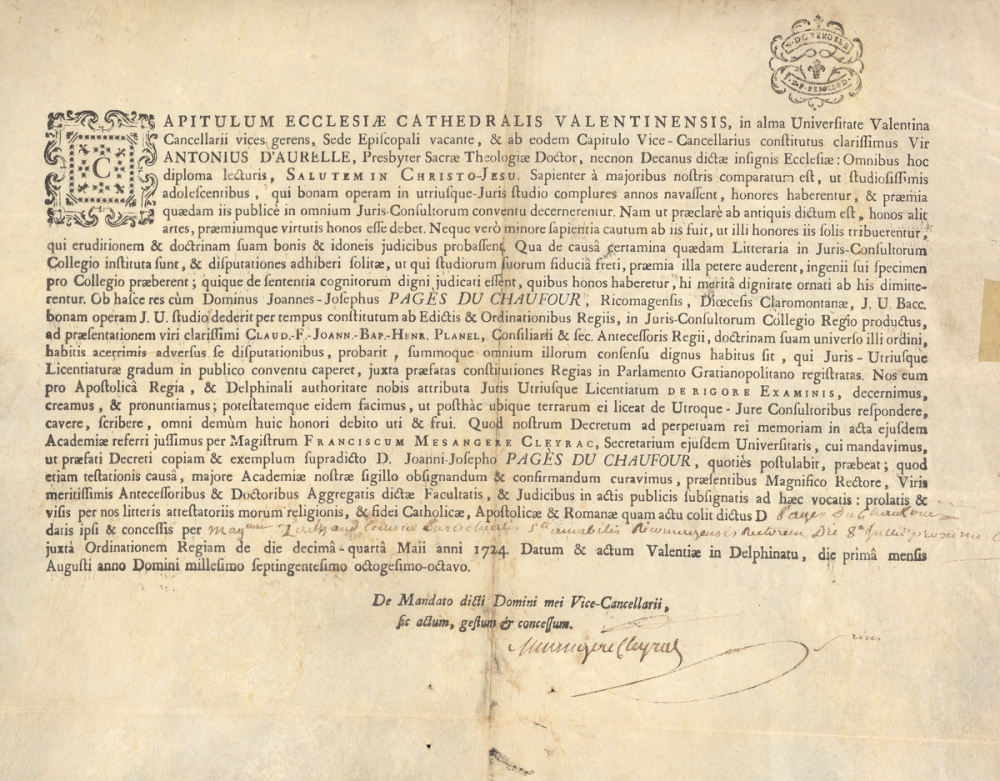 G. DE GRENOBLE
CAPITULUM ECCLESIÆ CATHEDRALIS VALENTINENSIS, in alma Universitate Valentina
Cancellarii vices gerens, Sede Episcopali vacante, & ab eodem Capitulo Vice-Cancellarius constitutus clarissimus Vir
ANTONIUS D'AURELLE, Presbyter Sacræ Theologiæ Doctor, necnon Decanus dictæ insignis Ecclesiæ: Omnibus hoc
diploma lecturis, SALUTEM IN CHRISTO-JESU. Sapienter à majoribus nostris comparatum est, ut studiosissimis
adolescentibus, qui bonam operam in utriusque-Juris studio complures annos navassent, honores haberentur, & præmia
quædam iis publicè in omnium Juris-Consultorum conventu decernerentur. Nam ut præclarè ab antiquis dictum est, honos alit
artes, præmiumque virtutis honos esse debet. Neque verò minore sapientia cautum ab iis fuit, ut illi honores iis solis tribuerentur,
qui eruditionem & doctrinam suam bonis & idoneis judicibus probassent. Qua de causâ certamina quædam Litteraria in Juris-Consultorum
Collegio instituta sunt, & disputationes adhiberi solitæ, ut qui studiorum suorum fiduciâ freti, præmia illa petere auderent, ingenii sui specimen
pro Collegio præberent; quique de sententia cognitorum digni judicati essent, quibus honos haberetur, hi meritâ dignitate ornati ab his dimitte-
rentur. Ob hasce res cùm Dominus Joannes-Josephus PAGÈS DU CHAUFOUR, Ricomagensis, Diœcesis Claromontanæ, J. U. Bacc.
bonam operam J. U. studio dederit per tempus constitutum ab Edictis & Ordinationibus Regiis, in Juris-Consultorum Collegio Regio productus,
ad præsentationem viri clarissimi CLAUD.-F.-JOANN.-BAP.-HENR. PLANEL, Consiliarii & sec. Antecessoris Regii, doctrinam suam universo illi ordini,
habitis acerrimis adversus se disputationibus, probarit, summoque omnium illorum consensu dignus habitus sit, qui Juris-Utriusque
Licentiaturæ gradum in publico conventu caperet, juxta præfatas constitutiones Regias in Parlamento Gratianopolitano registratas. Nos eum
pro Apostolicâ Regia, & Delphinali authoritate nobis attributa Juris Utriusque Licentiatum DE RIGORE EXAMINIS, decernimus,
creamus, & pronuntiamus; potestatemque eidem facimus, ut posthàc ubique terrarum ei liceat de Utroque-Jure Consultoribus respondere,
cavere, scribere, omni demùm huic honori debito uti & frui. Quod nostrum Decretum ad perpetuam rei memoriam in acta ejusdem
Academiæ referri jussimus per Magistrum FRANCISCUM MESANGERE CLEYRAC, Secretarium ejusdem Universitatis, cui mandavimus,
ut præfati Decreti copiam & exemplum supradicto D. Joanni-Josepho PAGÈS DU CHAUFOUR, quotiès postulabit, præbeat; quod
etiam testationis causâ, majore Academiæ nostræ sigillo obsignandum & confirmandum curavimus, præsentibus Magnifico Rectore, Viris
meritissimis Antecessoribus & Doctoribus Aggregatis dictæ Facultatis, & Judicibus in actis publicis subsignatis ad hæc vocatis: prolatis &
visis per nos litteris attestatoriis morum religionis, & fidei Catholicæ, Apostolicæ & Romanæ quam actu colit dictus D Pages Duchaufour
datis ipsi & concessis per mag Sti amabilis Ricomagensis Rectorem Die 8a Julii proximi
juxtà Ordinationem Regiam de die decimâ-quartâ Maii anni 1724. Datum & actum Valentiæ in Delphinatu, die primâ mensis
Augusti anno Domini millesimo septingentesimo octogesimo-octavo.
De Mandato dicti Domini mei Vice-Cancellarii,
sic actum, gestum & concessum.
Mesangere Cleyrac